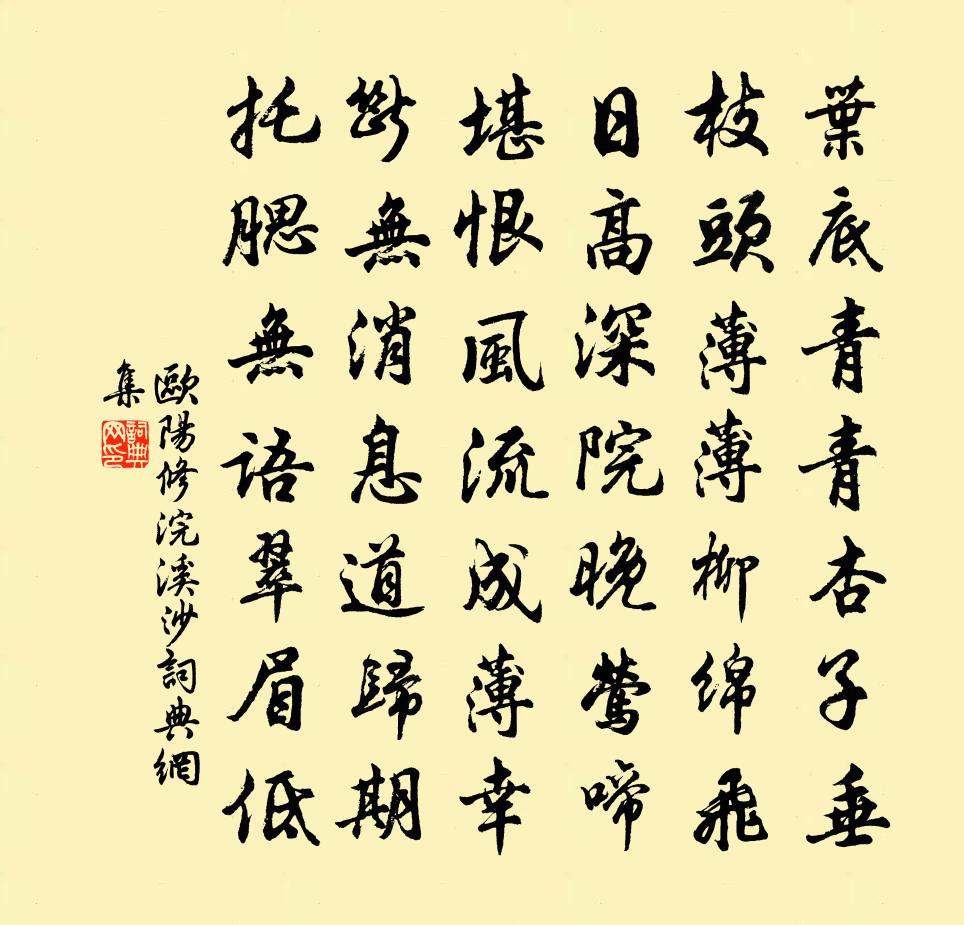 葉底青青杏子垂
枝頭薄薄柳綿飛
日高深院晚鶯啼
堪恨風流成薄幸
斷無消息道歸期
托腮無語翠眉低
歐陽修浣溪沙詞典網
集
詞典網印